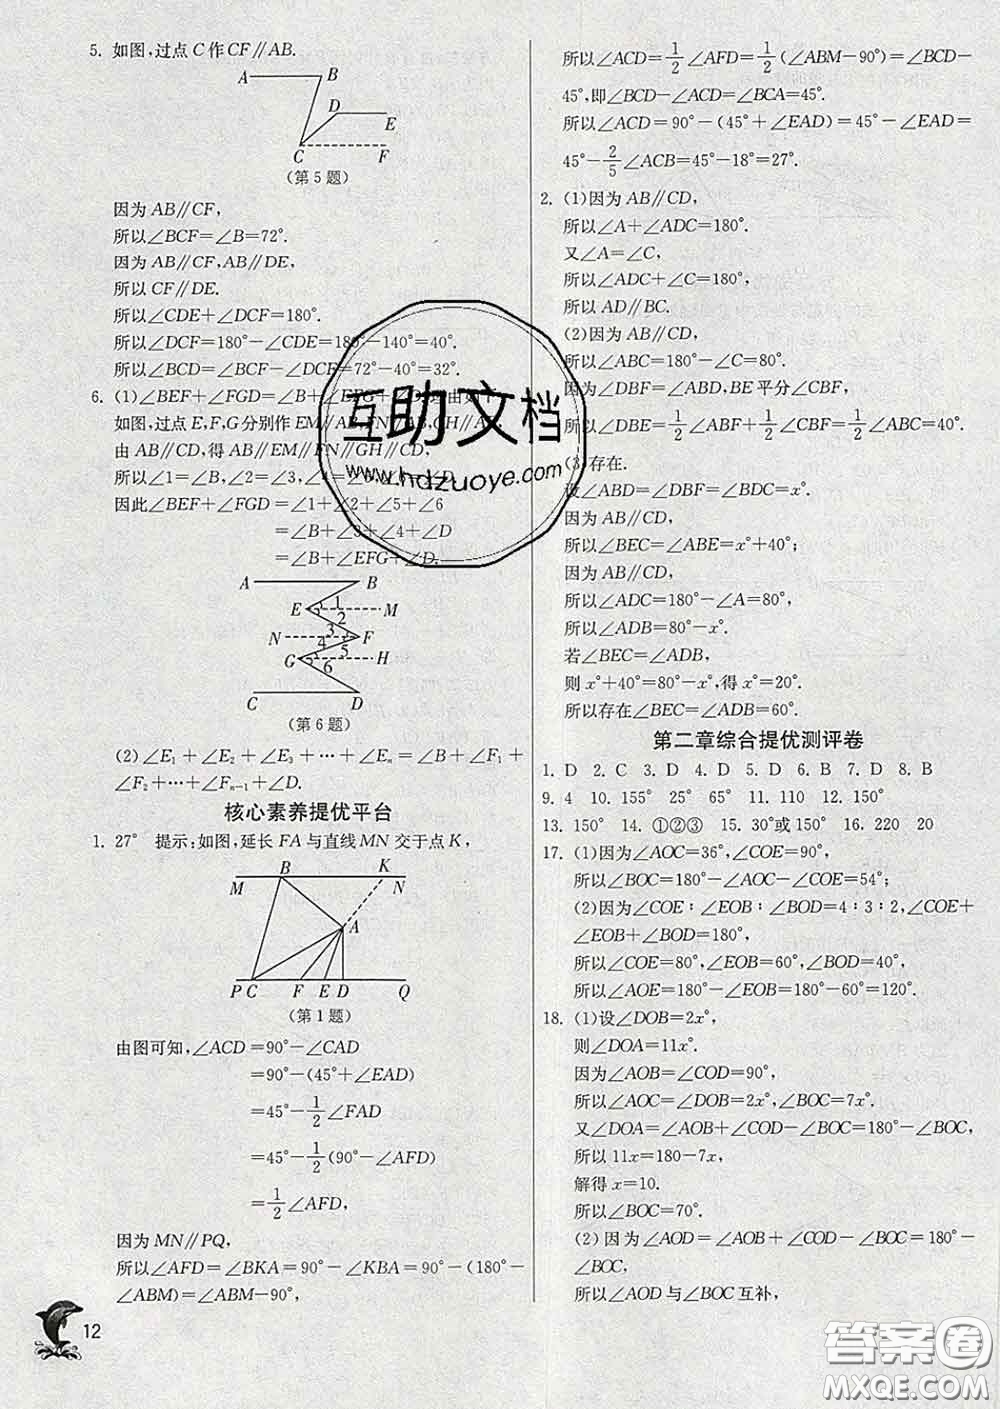 5. 如图,过点C作CF∥AB.
A B
D
E
C F
(第5题)
因为AB∥CF,
所以∠BCF=∠B=72°.
因为AB∥CF,AB∥DE,
所以CF∥DE.
所以∠CDE+∠DCF=180°.
所以∠DCF=180°-∠CDE=180°-140°=40°.
所以∠BCD=∠BCF-∠DCF=72°-40°=32°.
6. (1)∠BEF+∠FGD=∠B+∠EFG+∠D,理由如下
如图,过点E,F,G分别作EM∥AB,FN∥AB,CH∥A
由AB∥CD,得AB∥EM∥FN∥GH∥CD,
所以∠1=∠B,∠2=∠3,∠4=∠5,∠6=∠D
因此∠BEF+∠FGD=∠1+∠2+∠5+∠6
=∠B+∠3+∠4+∠D
=∠B+∠EFG+∠D.
A B
E 1 M
2
N 3 F
4 5
G 6 H
C D
(第6题)
(2)∠E₁+∠E₂+∠E₃+…+∠Eₙ=∠B+∠F₁+
∠F₂+…+∠Fₙ₋₁+∠D.
核心素养提优平台
1. 27° 提示:如图,延长FA与直线MN交于点K,
M B K N
A
P C F E D Q
(第1题)
由图可知,∠ACD=90°-∠CAD
=90°-(45°+∠EAD)
=45°-1/2∠FAD
=45°-1/2(90°-∠AFD)
=1/2∠AFD,
因为MN∥PQ,
所以∠AFD=∠BKA=90°-∠KBA=90°-(180°
-∠ABM)=∠ABM-90°,
12
所以∠ACD=1/2∠AFD=1/2(∠ABM-90°)=∠BCD-
45°,即∠BCD-∠ACD=∠BCA=45°.
所以∠ACD=90°-(45°+∠EAD)=45°-∠EAD=
45°-2/5∠ACB=45°-18°=27°.
2. (1)因为AB∥CD,
所以∠A+∠ADC=180°.
又∠A=∠C,
所以∠ADC+∠C=180°.
所以AD∥BC.
(2)因为AB∥CD,
所以∠ABC=180°-∠C=80°.
因为∠DBF=∠ABD,BE平分∠CBF,
所以∠DBE=1/2∠ABF+1/2∠CBF=1/2∠ABC=40°.
(3)存在.
设∠ABD=∠DBF=∠BDC=x°.
因为AB∥CD,
所以∠BEC=∠ABE=x°+40°;
因为AB∥CD,
所以∠ADC=180°-∠A=80°,
所以∠ADB=80°-x°.
若∠BEC=∠ADB,
则x°+40°=80°-x°,得x°=20°.
所以存在∠BEC=∠ADB=60°.
第二章综合提优测评卷
1. D 2. C 3. D 4. D 5. D 6. B 7. D 8. B
9. 4 10. 155° 25° 65° 11. 110 12. 150°
13. 150° 14. ①②③ 15. 30°或150° 16. 220 20
17. (1)因为∠AOC=36°,∠COE=90°,
所以∠BOC=180°-∠AOC-∠COE=54°;
(2)因为∠COE∶∠EOB∶∠BOD=4∶3∶2,∠COE+
∠EOB+∠BOD=180°,
所以∠COE=80°,∠EOB=60°,∠BOD=40°,
所以∠AOE=180°-∠EOB=180°-60°=120°.
18. (1)设∠DOB=2x°,
则∠DOA=11x°.
因为∠AOB=∠COD=90°,
所以∠AOC=∠DOB=2x°,∠BOC=7x°.
又∠DOA=∠AOB+∠COD-∠BOC=180°-∠BOC,
所以11x=180-7x,
解得x=10.
所以∠BOC=70°.
(2)因为∠AOD=∠AOB+∠COD-∠BOC=180°-
∠BOC,
所以∠AOD与∠BOC互补,
互助文档
www.hdzuoye.com
答案圈
MXQE.COM